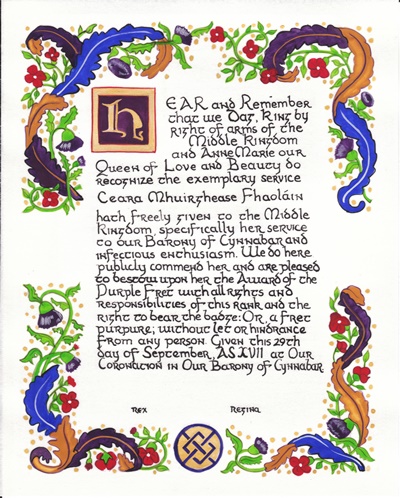 HEAR and Remember
that we Dag, King by
right of arms of the
Middle Kingdom
and AnneMarie our
Queen of Love and Beauty do
recognize the exemplary service
Ceara Mhuirghease Fhaoláin
hath freely given to the Middle
Kingdom, specifically her service
to our Barony of Cynnabar and
infectious enthusiasm. We do here
publicly commend her and are pleased
to bestow upon her the Award of the
Purple Fret with all rights and
responsibilities of this rank and the
right to bear the badge: Or, a fret
purpure, without let or hindrance
from any person. Given this 29th
day of September, AS XVII at Our
Coronation in Our Barony of Cynnabar
Rex Regina